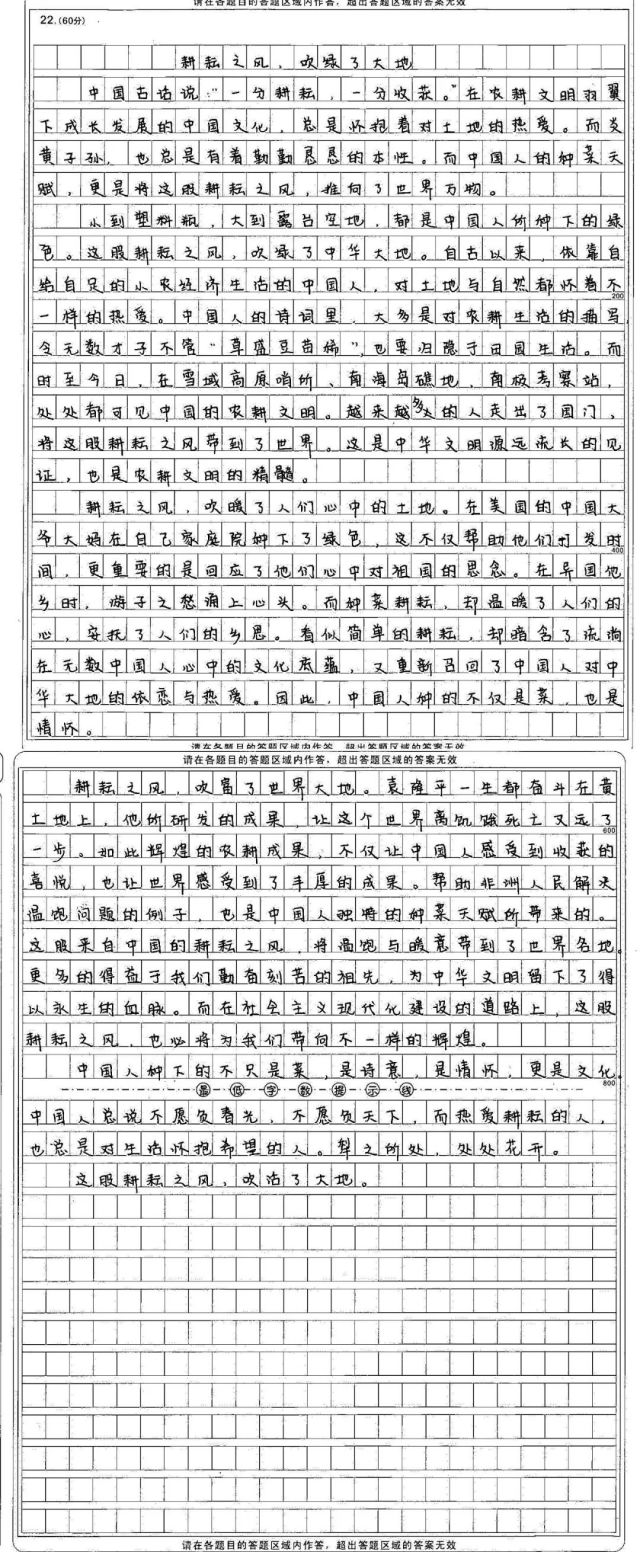 请在各题目的答题区域内作答，超出答题区域的答案无效
22.(60分)
耕耘之风，吹绿了大地
中国古话说：“一分耕耘，一分收获。”在农耕文明羽翼
下成长发展的中国文化，总是怀抱着对土地的热爱。而炎
黄子孙，也总是有着勤勤恳恳的本性。而中国人的种菜天
赋，更是将这股耕耘之风，推向了世界万物。
小到塑料瓶，大到露台空地，都是中国人所种下的绿
色。这股耕耘之风，吹绿了中华大地。自古以来，依靠自
给自足的小农经济生活的中国人，对土地与自然都怀着不
200
一样的热爱。中国人的诗词里，大多是对农耕生活的描写，
令无数才子不管“草盛豆苗稀”，也要归隐于田园生活。而
时至今日，在雪域高原哨所、南海岛礁地，南极考察站，
处处都可见中国的农耕文明。越来越多的人走出了国门，
将这股耕耘之风带到了世界。这是中华文明源远流长的见
证，也是农耕文明的精髓。
耕耘之风，吹暖了人们心中的土地。在美国的中国大
爷大妈在自己家庭院种下了绿色，这不仅帮助他们打发时
400
间，更重要的是回应了他们心中对祖国的思念。在异国他
乡时，游子之愁涌上心头。而种菜耕耘，却温暖了人们的
心，安抚了人们的乡思。看似简单的耕耘，却暗含了流淌
在无数中国人心中的文化底蕴，又重新召回了中国人对中
华大地的依恋与热爱。因此，中国人种的不仅是菜，也是
情怀。
请在各题目的答题区域内作答，超出答题区域的答案无效
请在各题目的答题区域内作答，超出答题区域的答案无效
耕耘之风，吹富了世界大地。袁隆平一生都奋斗在黄
土地上，他所研发的成果，让这个世界离饥饿死亡又远了
600
一步。如此辉煌的农耕成果，不仅让中国人感受到收获的
喜悦，也让世界感受到了丰厚的成果。帮助非洲人民解决
温饱问题的例子，也是中国人独特的种菜天赋所带来的。
这股来自中国的耕耘之风，将温饱与暖意带到了世界各地。
更多的得益于我们勤奋刻苦的祖先，为中华文明留下了得
以永生的血脉。而在社会主义现代化建设的道路上，这股
耕耘之风，也必将为我们带向不一样的辉煌。
中国人种下的不只是菜，是诗意，是情怀，更是文化。
800
最低字数提示线
中国人总说不愿负春光，不愿负天下，而热爱耕耘的人，
也总是对生活怀抱希望的人。犁之所处，处处花开。
这股耕耘之风，吹活了大地。
请在各题目的答题区域内作答，超出答题区域的答案无效